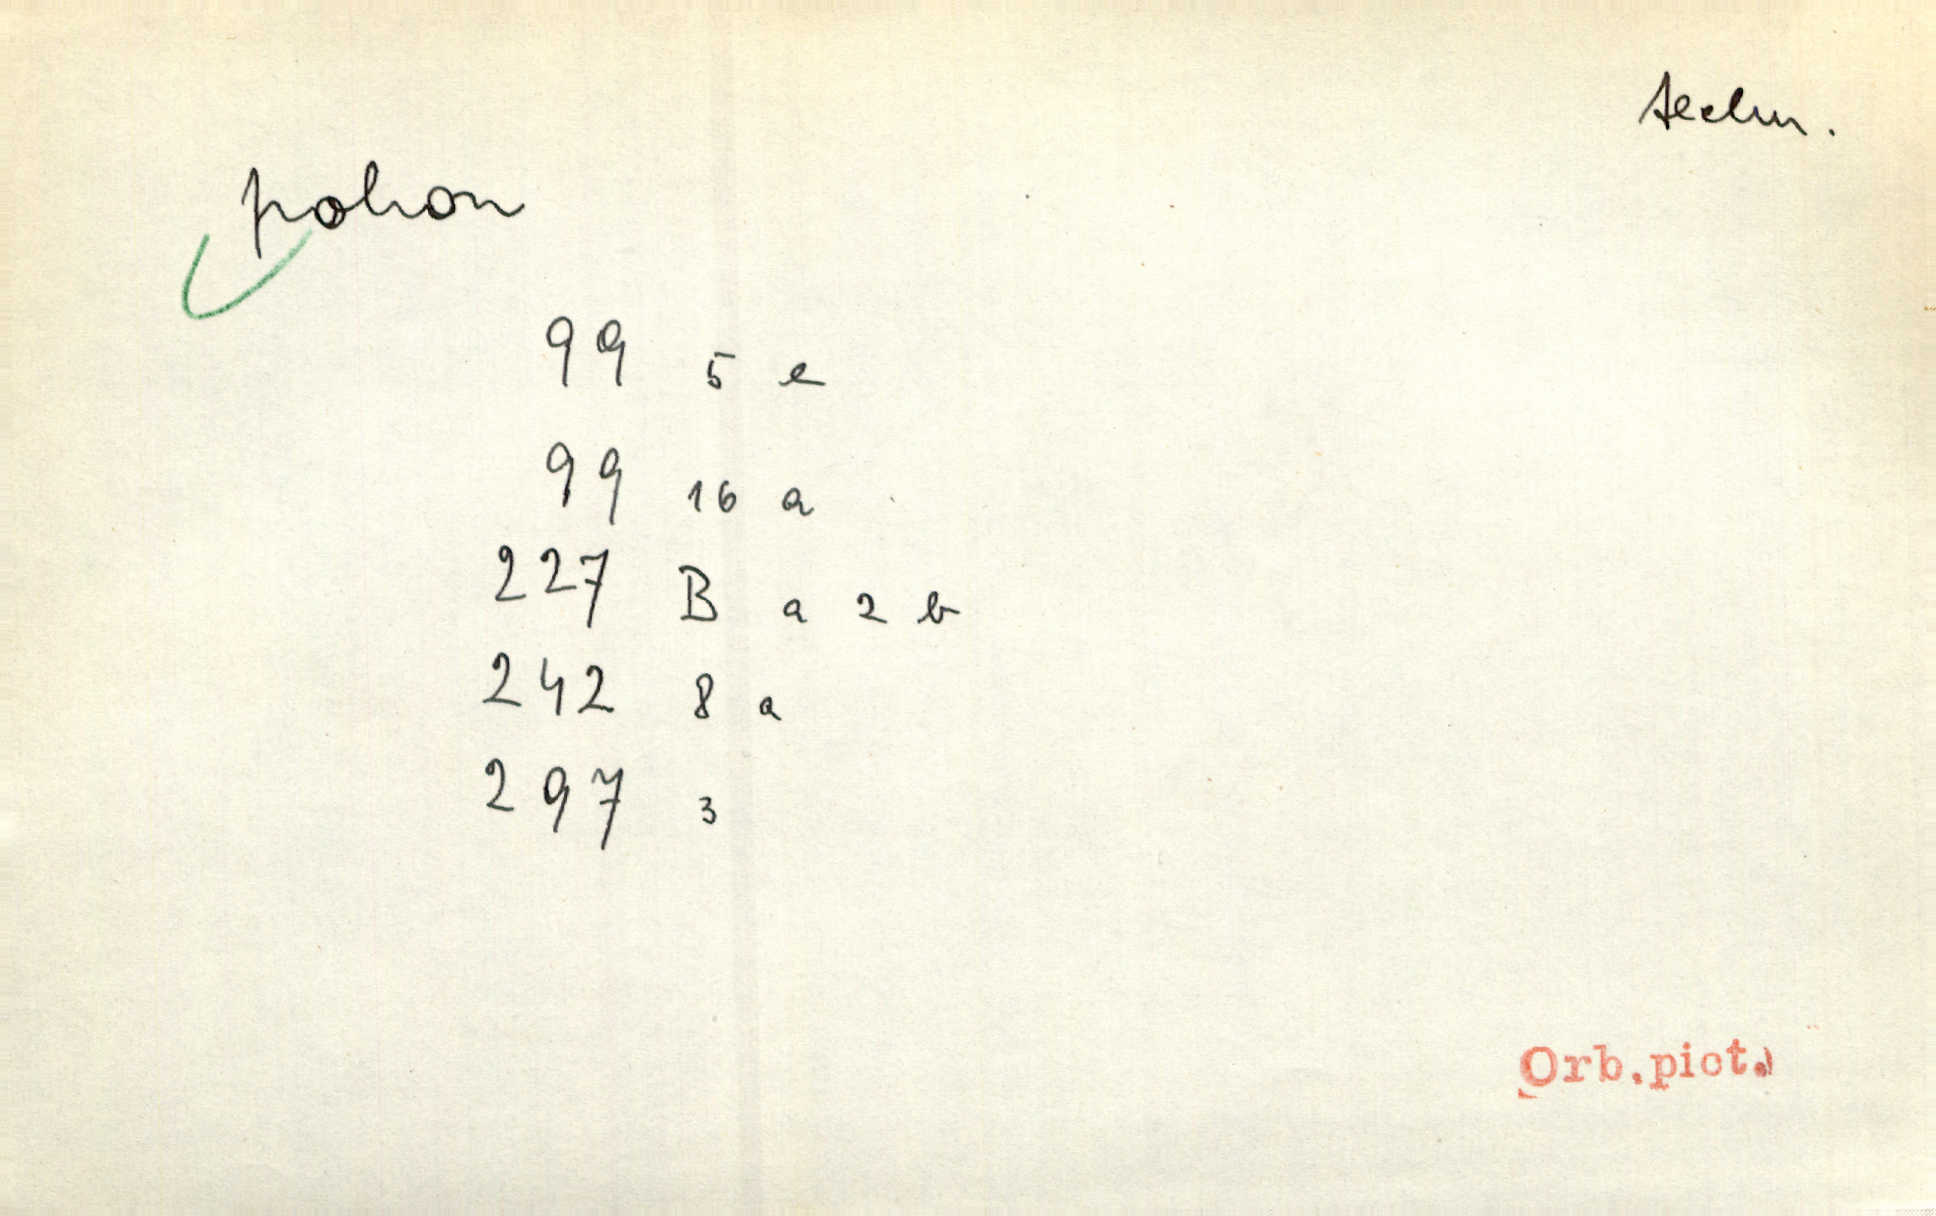 techn.
pohon
99 5 e
99 16 a
227 B a 2 b
242 8 a
297 3
Orb.pict.